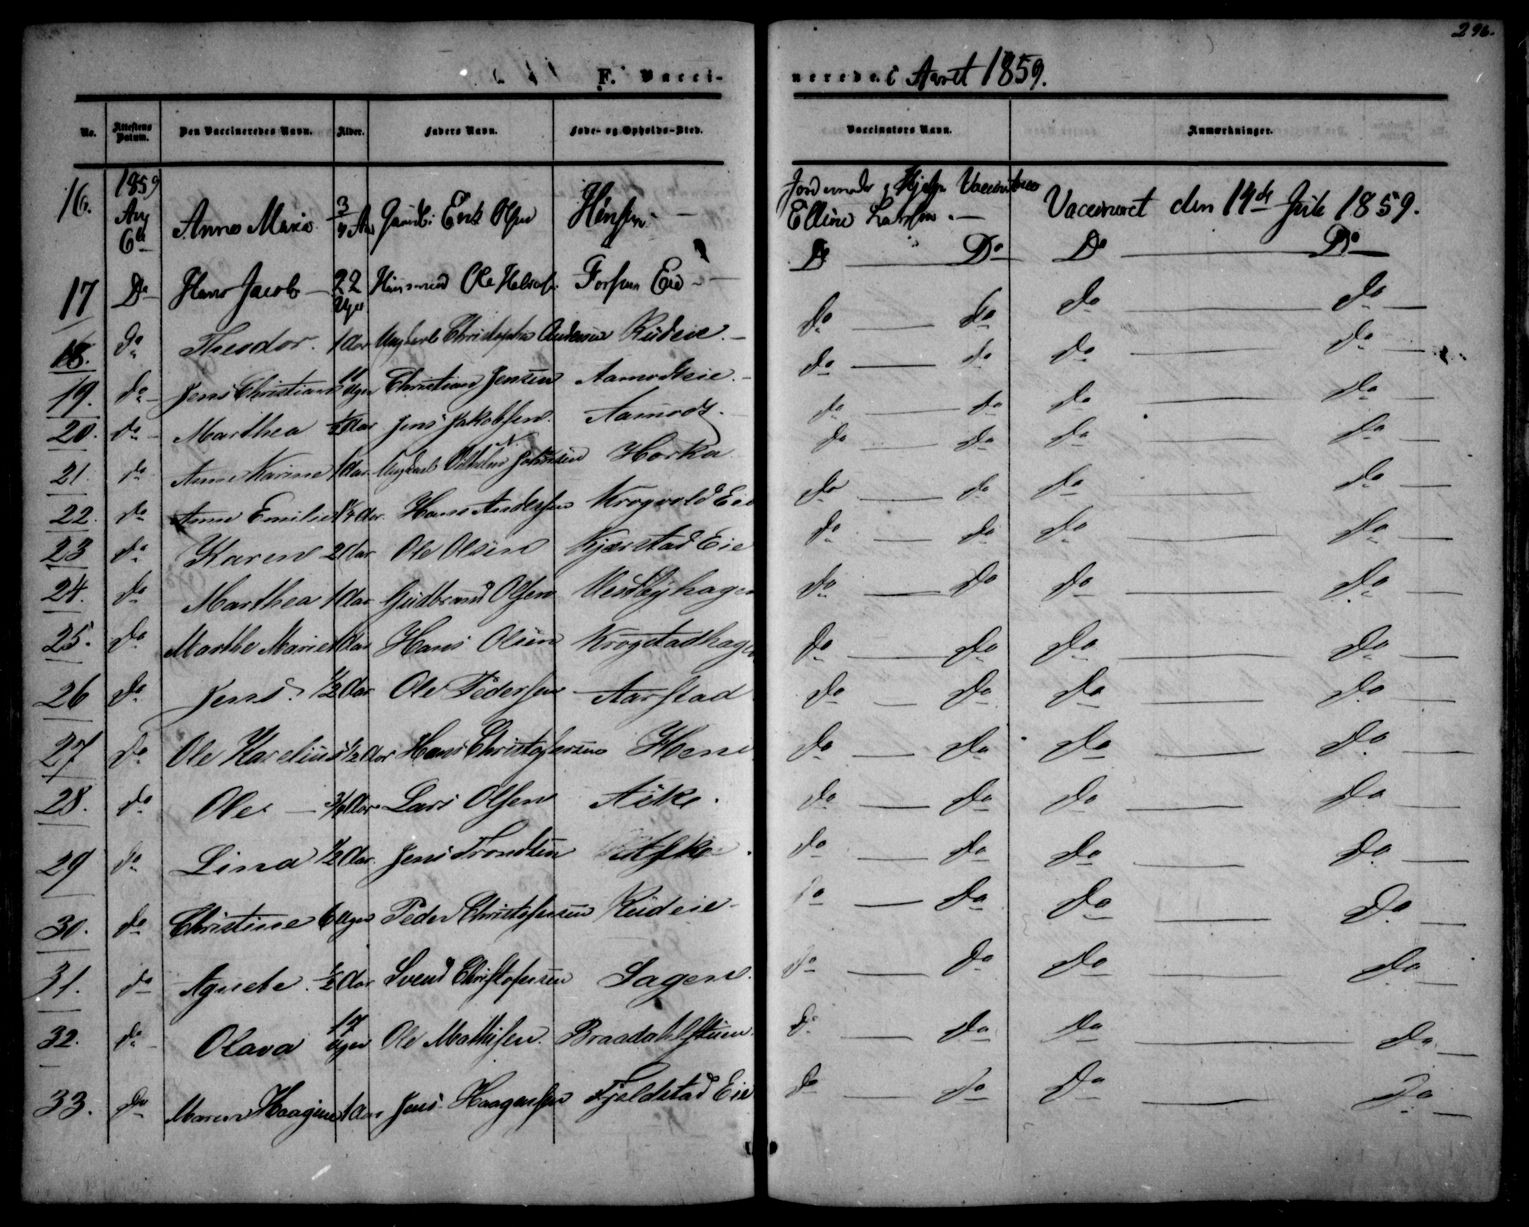 296.
F. Vacci- nerede i Aaret 1859.
No. Attestens Datum. Den Vaccineredes Navn. Alder. Faders Navn. Føde- og Opholds-Sted. Vaccinators Navn. Anmærkninger.
16. 1859 Aug 6te Anne Marie 3/4 Aar Erik Olsen Jordemoder Vaccinatrice Elline Larsen. — Vaccineret den 14de Juli 1859.
17 Do Hans Jacob — 22 Uger Huusmand Ole Forsen Eie — Do — Do Do — Do
18. do Theodor. 1 Aar Ungkarl Christopher Andersen Rudeie. — do — do do — do —
19. do — Jens Christian Uger Christian Jensen Aamodteie. — do — do do — do —
20. do — Marthea Aar Jens Jakobsen. Aamodt. do — do do — do —
21. do Anne Karine 1 Aar Ungkarl Vilhelm Johnsen Horka do — do do — do —
22. do Anne Emilie Aar. Hans Andersen Krogvold Eie do — do do — do —
23 do Karen 2 Aar Ole Olsen Kjærstad Eie do — do do — do —
24. do Marthea 1 Aar Gudbrand Olsen Vestbyhagen do — do do — do —
25. do Marthe Marie 1 Aar Hans Olsen Krogstadhagen do — do do — do —
26 do Jens. 1/2 Aar Ole Pedersen Aarstad do — do do — do —
27 do Ole Karelius 1/2 Aar Hans Christophersen Hem do — do do — do —
28. do Ole — 3/4 Aar Lars Olsen Aske. do — do do — do —
29 do Lina 1/2 Aar. Jens Trondsen Aske. do — do do — do —
30. do Christine 6 Uger Peder Christophersen Rudeie — do — do do — do —
31. do Agnethe. 1/2 Aar Svend Christophersen Sagen. do — do do — do —
32. do — Olava 17 Uger Ole Mathisen. Braadahlstuen. do — do do — do —
33. do Maren Haagine 1 Aar Jens Haagensen Fjeldstad Eie do — do do — do —